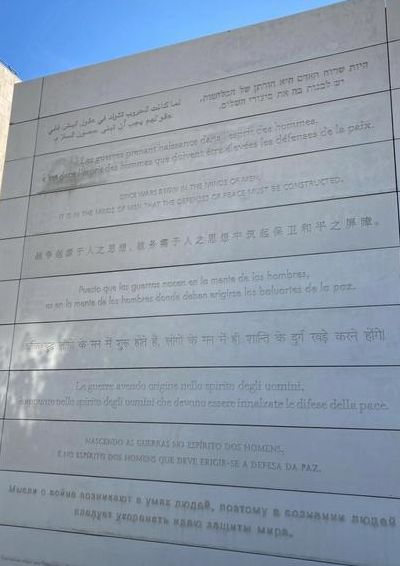 לما كانت الحروب تتولد في عقول البشر ففي
عقولهم يجب أن تبنى حصون السلام
היות שרוח האדם היא הורתן של המלחמות,
יש לבנות בה את ביצורי השלום.
Les guerres prenant naissance dans l'esprit des hommes,
c'est dans l'esprit des hommes que doivent être élevées les défenses de la paix.
ONCE WARS BEGIN IN THE MINDS OF MEN,
IT IS IN THE MINDS OF MEN THAT THE DEFENSES OF PEACE MUST BE CONSTRUCTED.
战争起源于人之思想，故务需于人之思想中筑起保卫和平之屏障。
Puesto que las guerras nacen en la mente de los hombres,
es en la mente de los hombres donde deben erigirse los baluartes de la paz.
युद्ध लोगों के मन में शुरू होते हैं, लोगों के मन में ही शान्ति के दुर्ग खड़े करने होंगे।
Le guerre avendo origine nello spirito degli uomini,
è appunto nello spirito degli uomini che devono essere innalzate le difese della pace.
NASCENDO AS GUERRAS NO ESPÍRITO DOS HOMENS,
É NO ESPÍRITO DOS HOMENS QUE DEVE ERIGIR-SE A DEFESA DA PAZ.
Мысли о войне возникают в умах людей, поэтому в сознании людей
следует укоренять идею защиты мира.